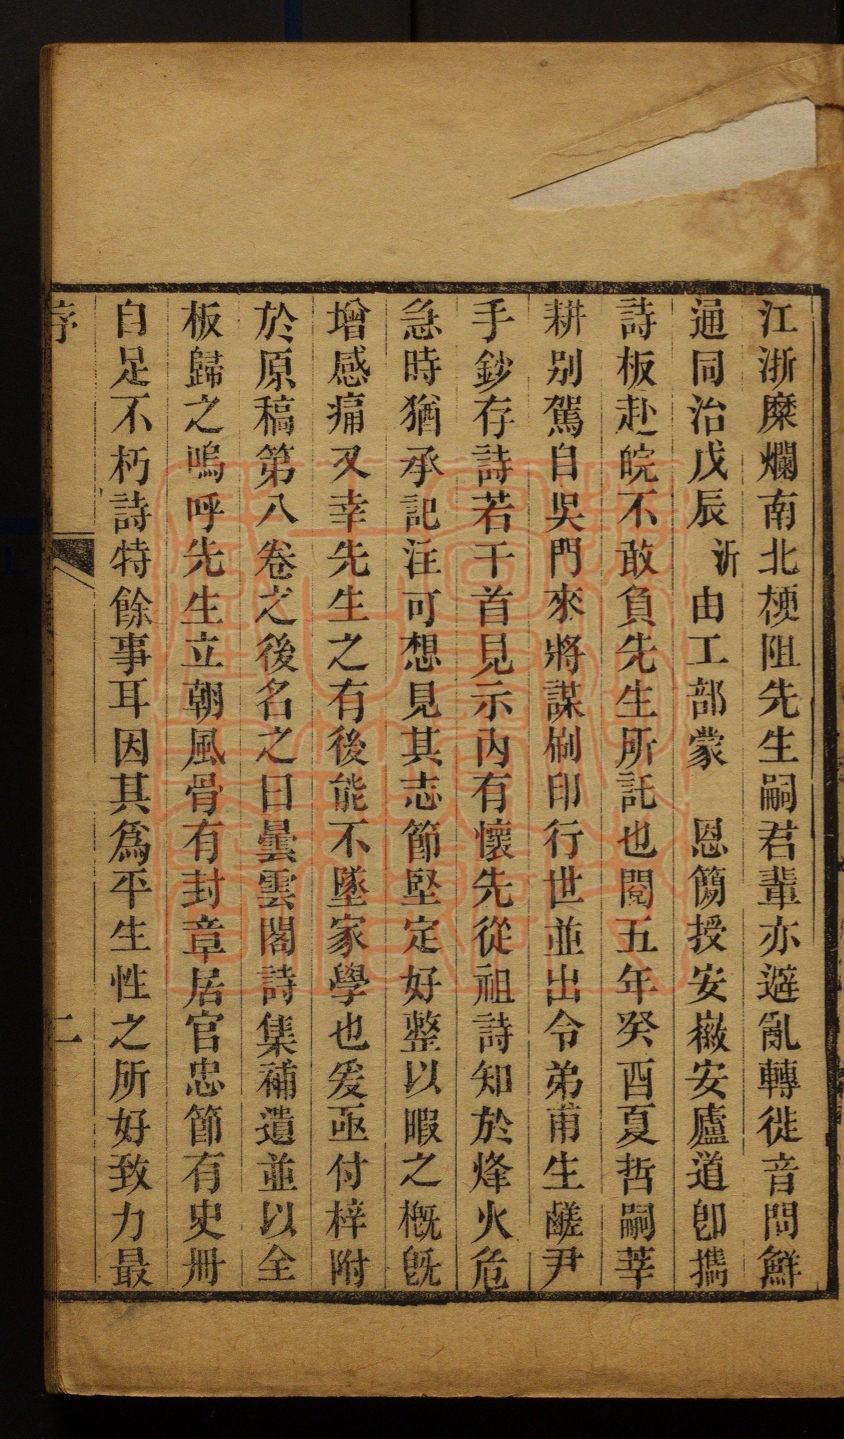 江浙糜爛南北梗阻先生嗣君輩亦避亂轉徙音問鮮
通同治戊辰沂由工部蒙　恩簡授安徽安廬道卽攜
詩板赴皖不敢負先生所託也閱五年癸酉夏哲嗣莘
耕别駕自吳門來將謀刷印行世並出令弟甫生鹺尹
手鈔存詩若干首見示內有懷先從祖詩知於烽火危
急時猶承記注可想見其志節堅定好整以暇之槪旣
增感痛又幸先生之有後能不墜家學也爰亟付梓附
於原稿第八卷之後名之曰曇雲閣詩集補遺並以全
板歸之嗚呼先生立朝風骨有封章居官忠節有史冊
自足不朽詩特餘事耳因其爲平生性之所好致力最
序
二